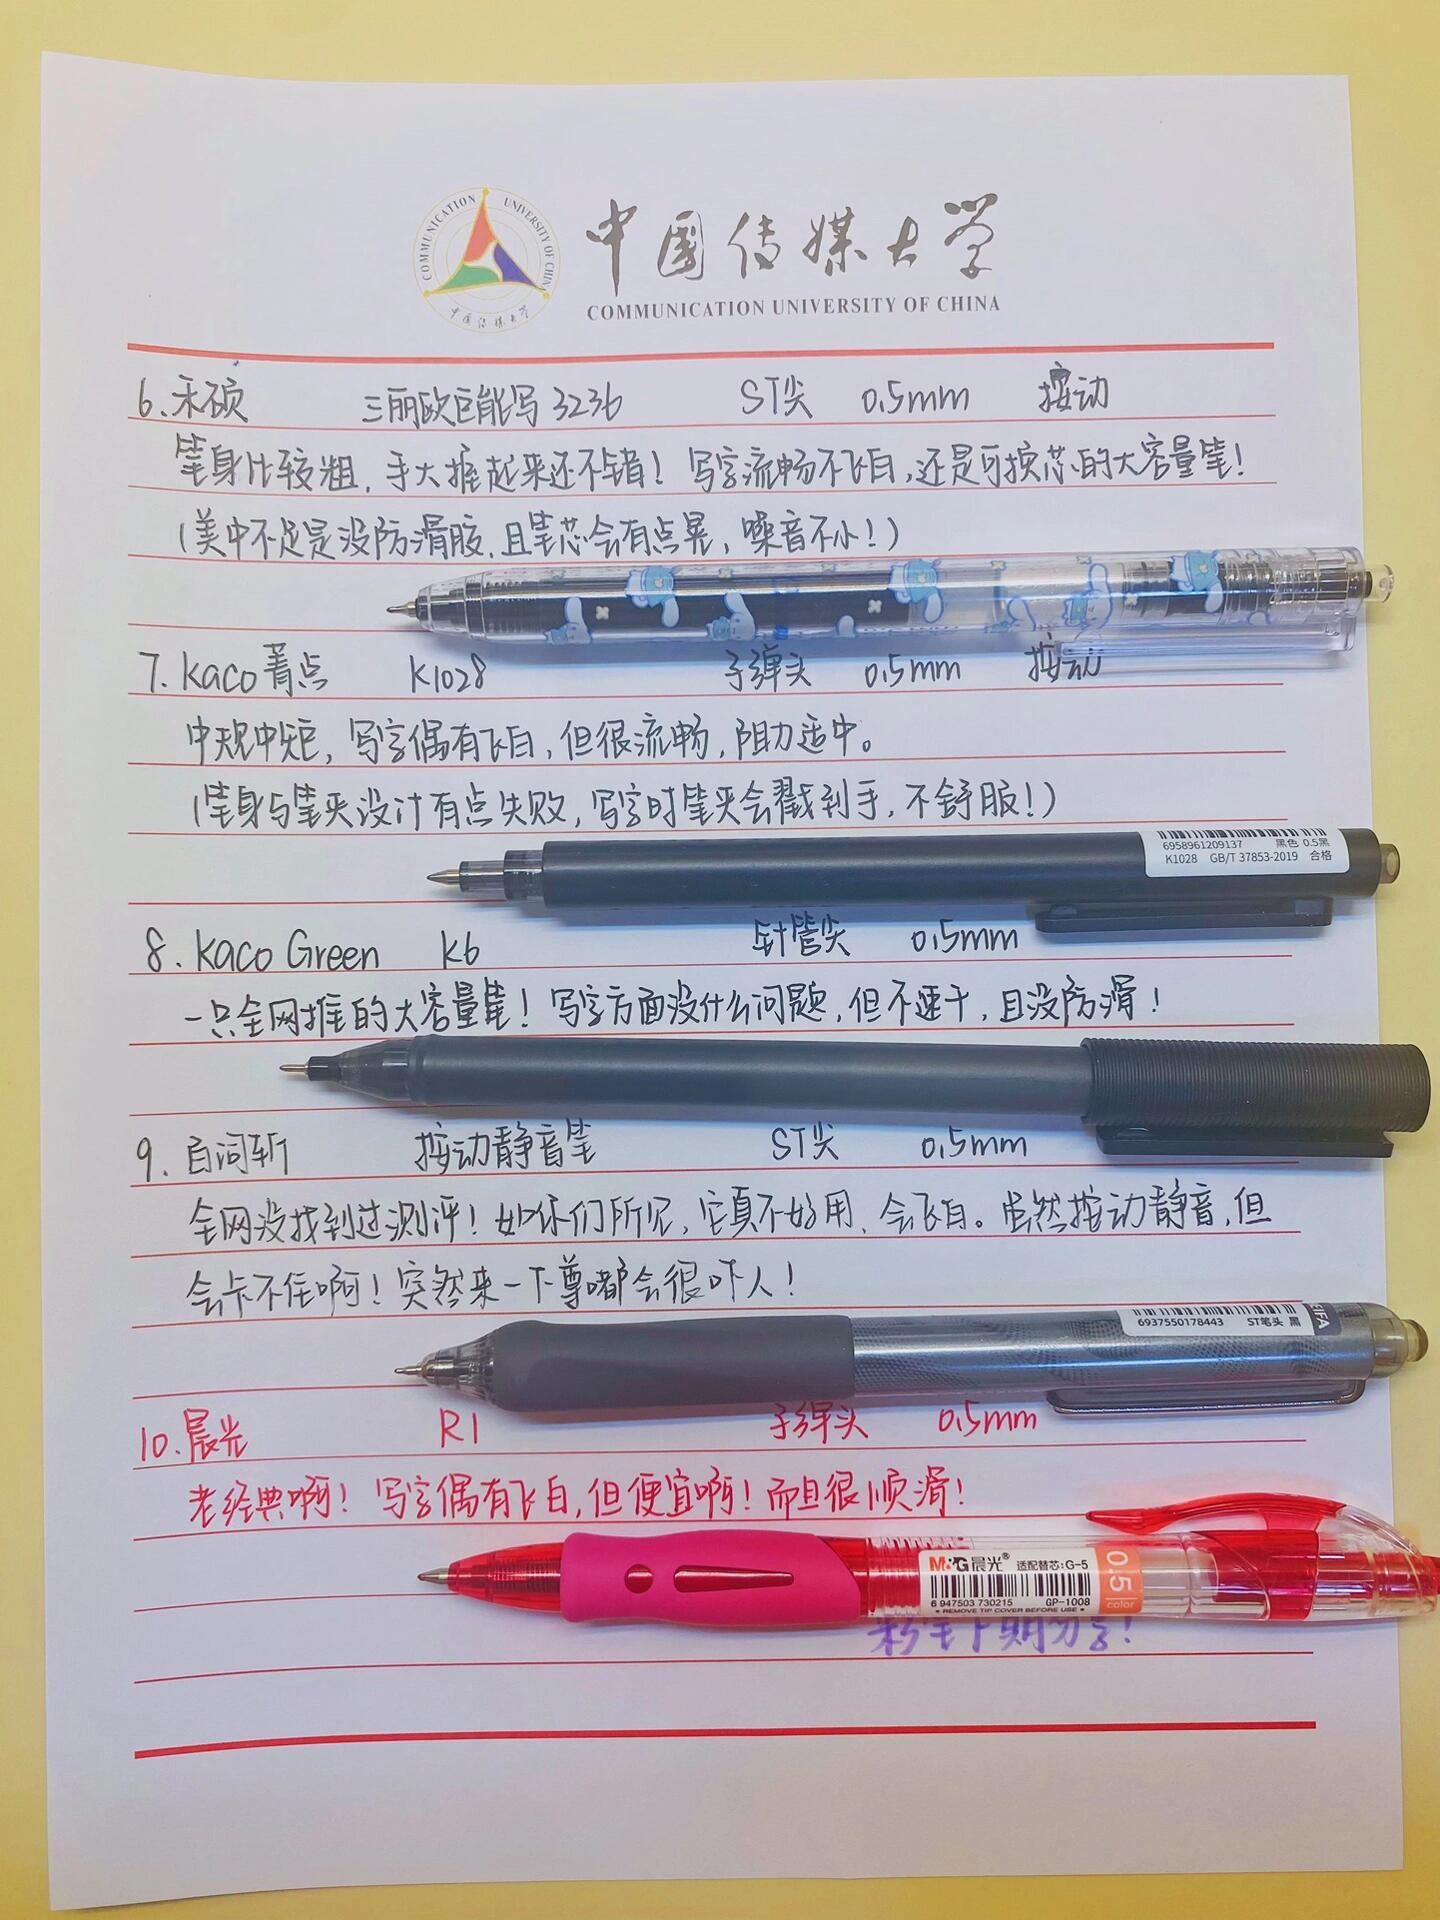 COMMUNICATION UNIVERSITY OF CHINA
中国传媒大学
中国传媒大学
COMMUNICATION UNIVERSITY OF CHINA
6.禾硕 三丽欧巨能写3236 ST尖 0.5mm 按动
笔身比较粗,手大握起来还不错!写字流畅不飞白,还是可换芯的大容量笔!
(美中不足是没防滑胶,且笔芯会有点晃,噪音不小!)
7.Kaco菁点 K1028 子弹头 0.5mm 按动
中规中矩,写字偶有飞白,但很流畅,阻力适中。
(笔身与笔夹设计有点失败,写字时笔夹会戳到手,不舒服!)
6958961209137 黑色 0.5黑
K1028 GB/T 37853-2019 合格
8.Kaco Green K6 针管尖 0.5mm
一只全网推的大容量笔!写字方面没什么问题,但不速干,且没防滑!
9.白问斩 按动静音笔 ST尖 0.5mm
全网没找到过测评!如你们所见,它真不好用,会飞白。虽然按动静音,但
会卡不住啊!突然来一下尊嘟会很吓人!
6937550178443 ST笔头 黑
10.晨光 R1 子弹头 0.5mm
老经典啊!写字偶有飞白,但便宜啊!而且很顺滑!
M&G晨光® 适配替芯:G-5
6 947503 730215 GP-1008
• REMOVE TIP COVER BEFORE USE •
0.5
color
彩笔下期分享!